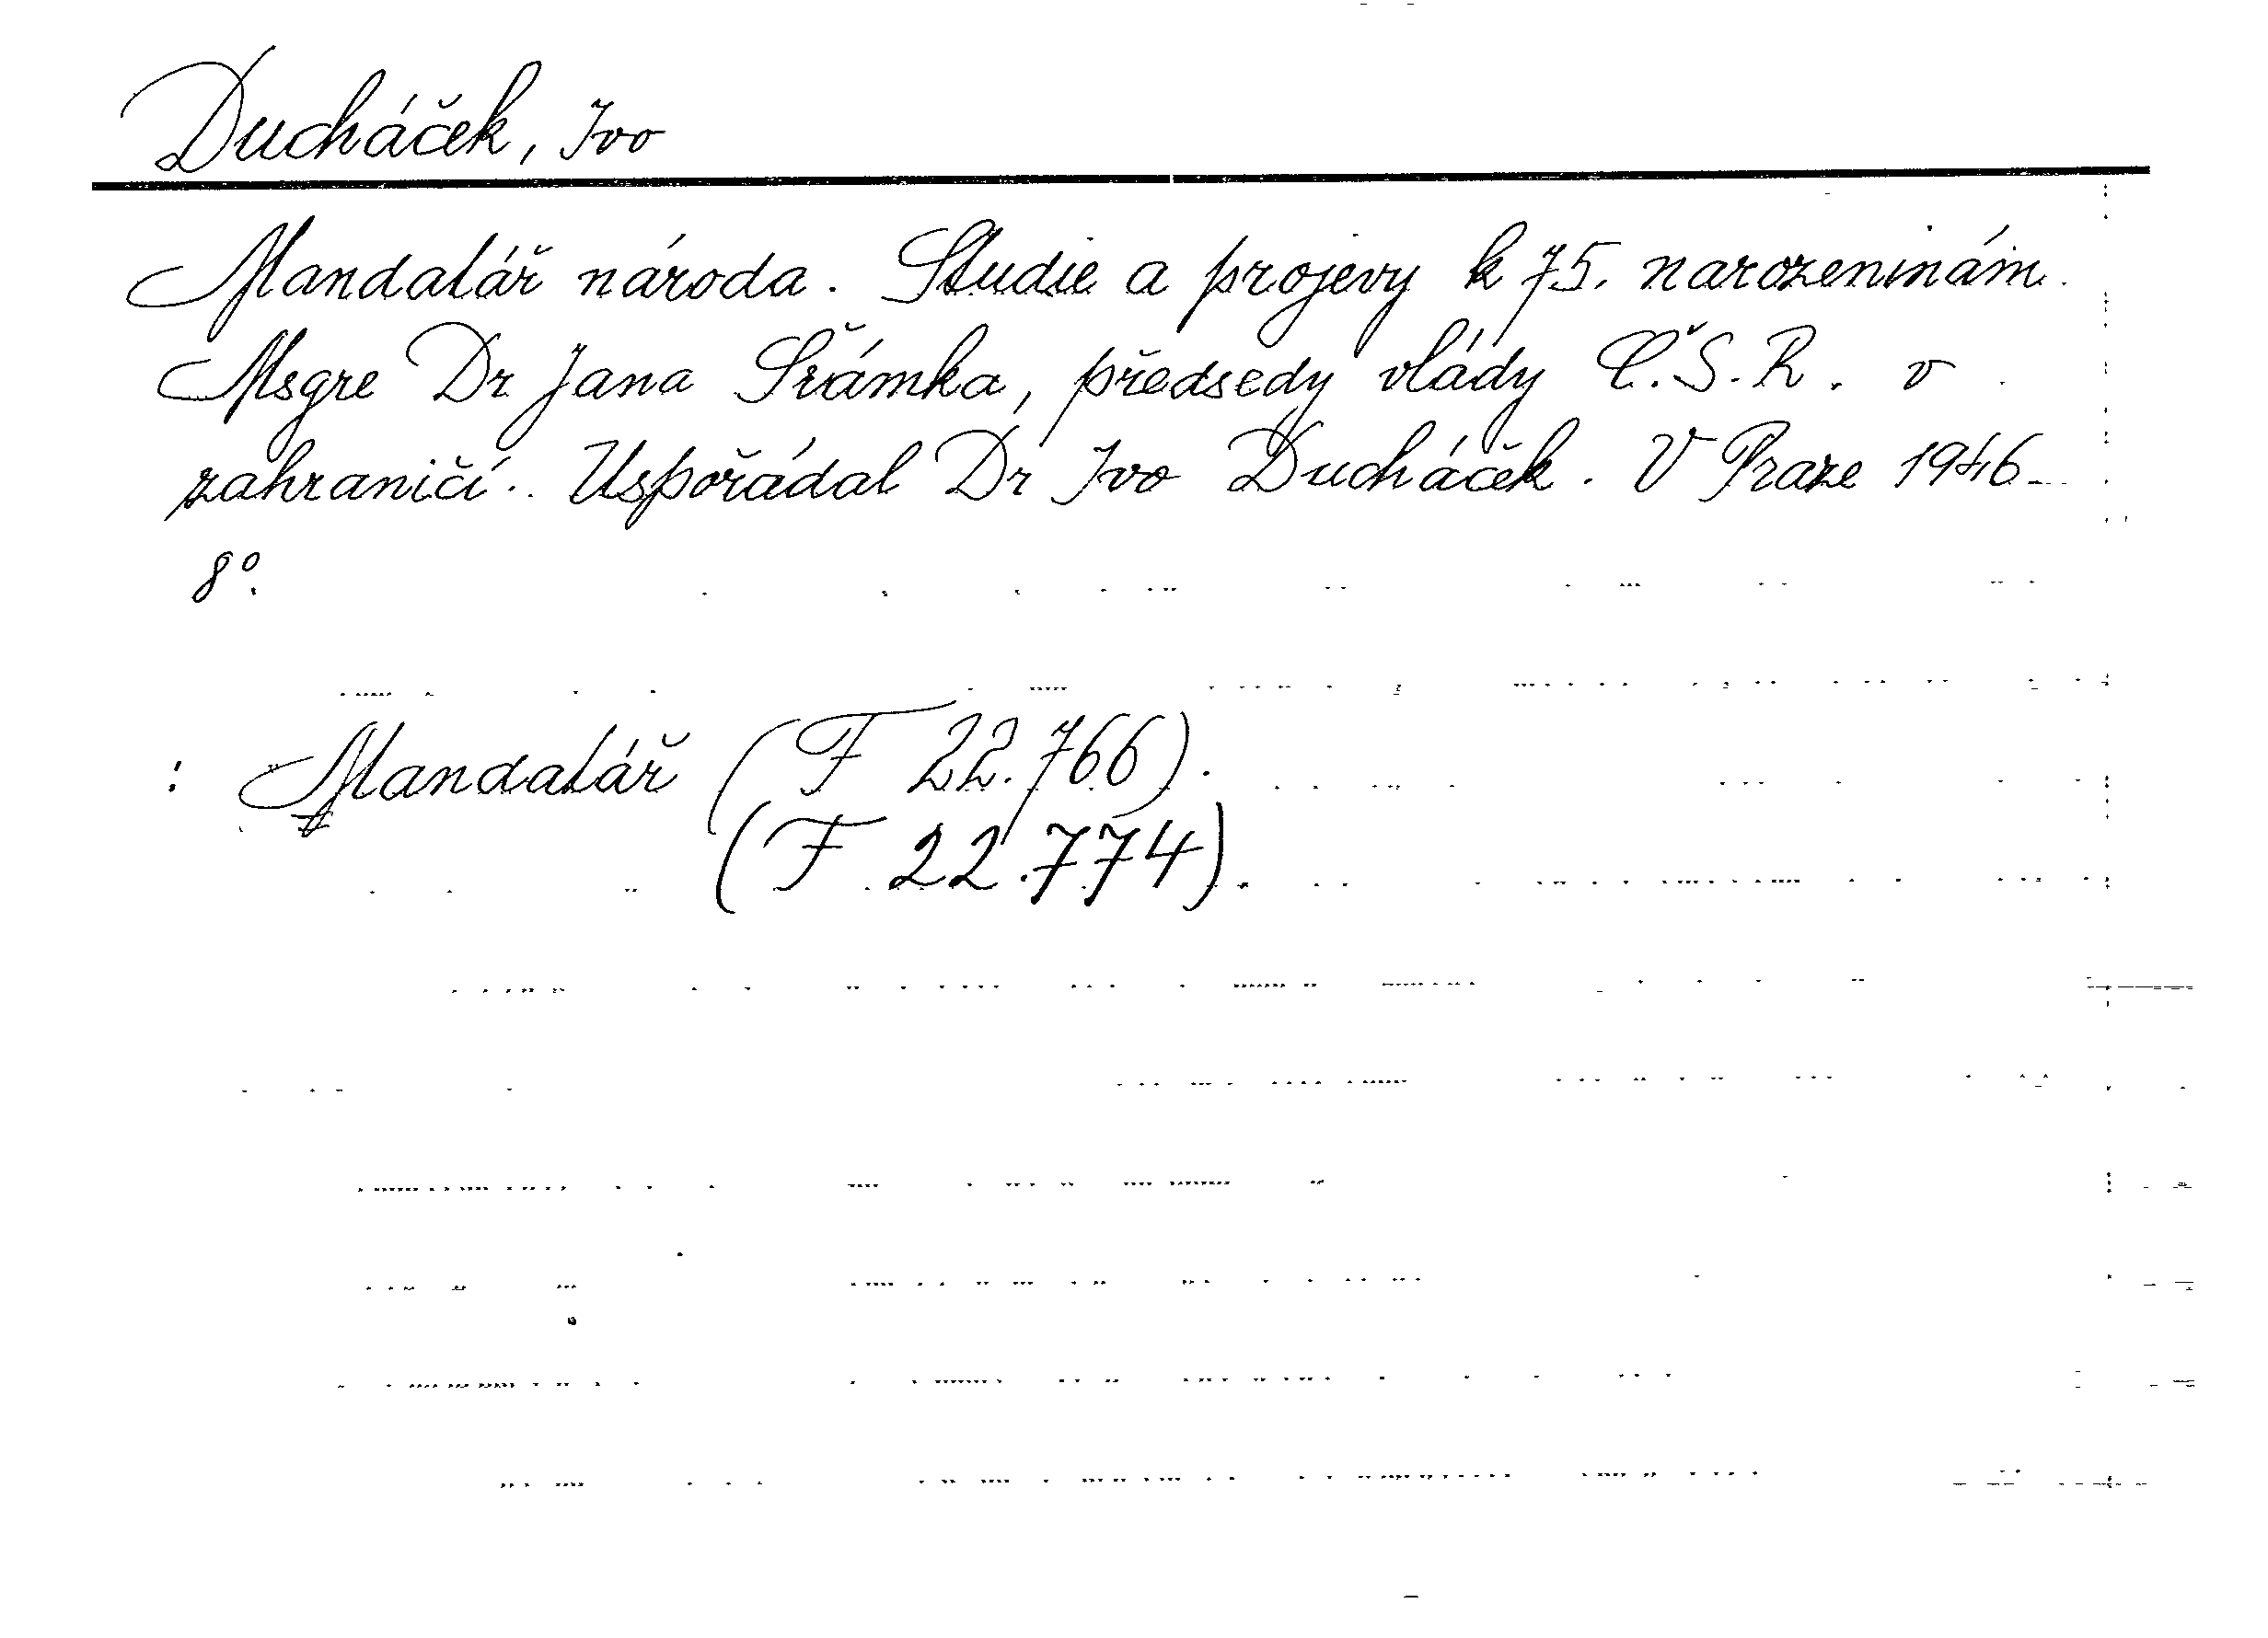 Ducháček, Ivo
Mandalář národa. Studie a projevy k 75. narozeninám
Msgre Dr Jana Šrámka, předsedy vlády Č.S.R. v
zahraničí. Uspořádal Dr Ivo Ducháček. V Praze 1946
8º.
: Mandalář (F 22.766).
(F 22.774).